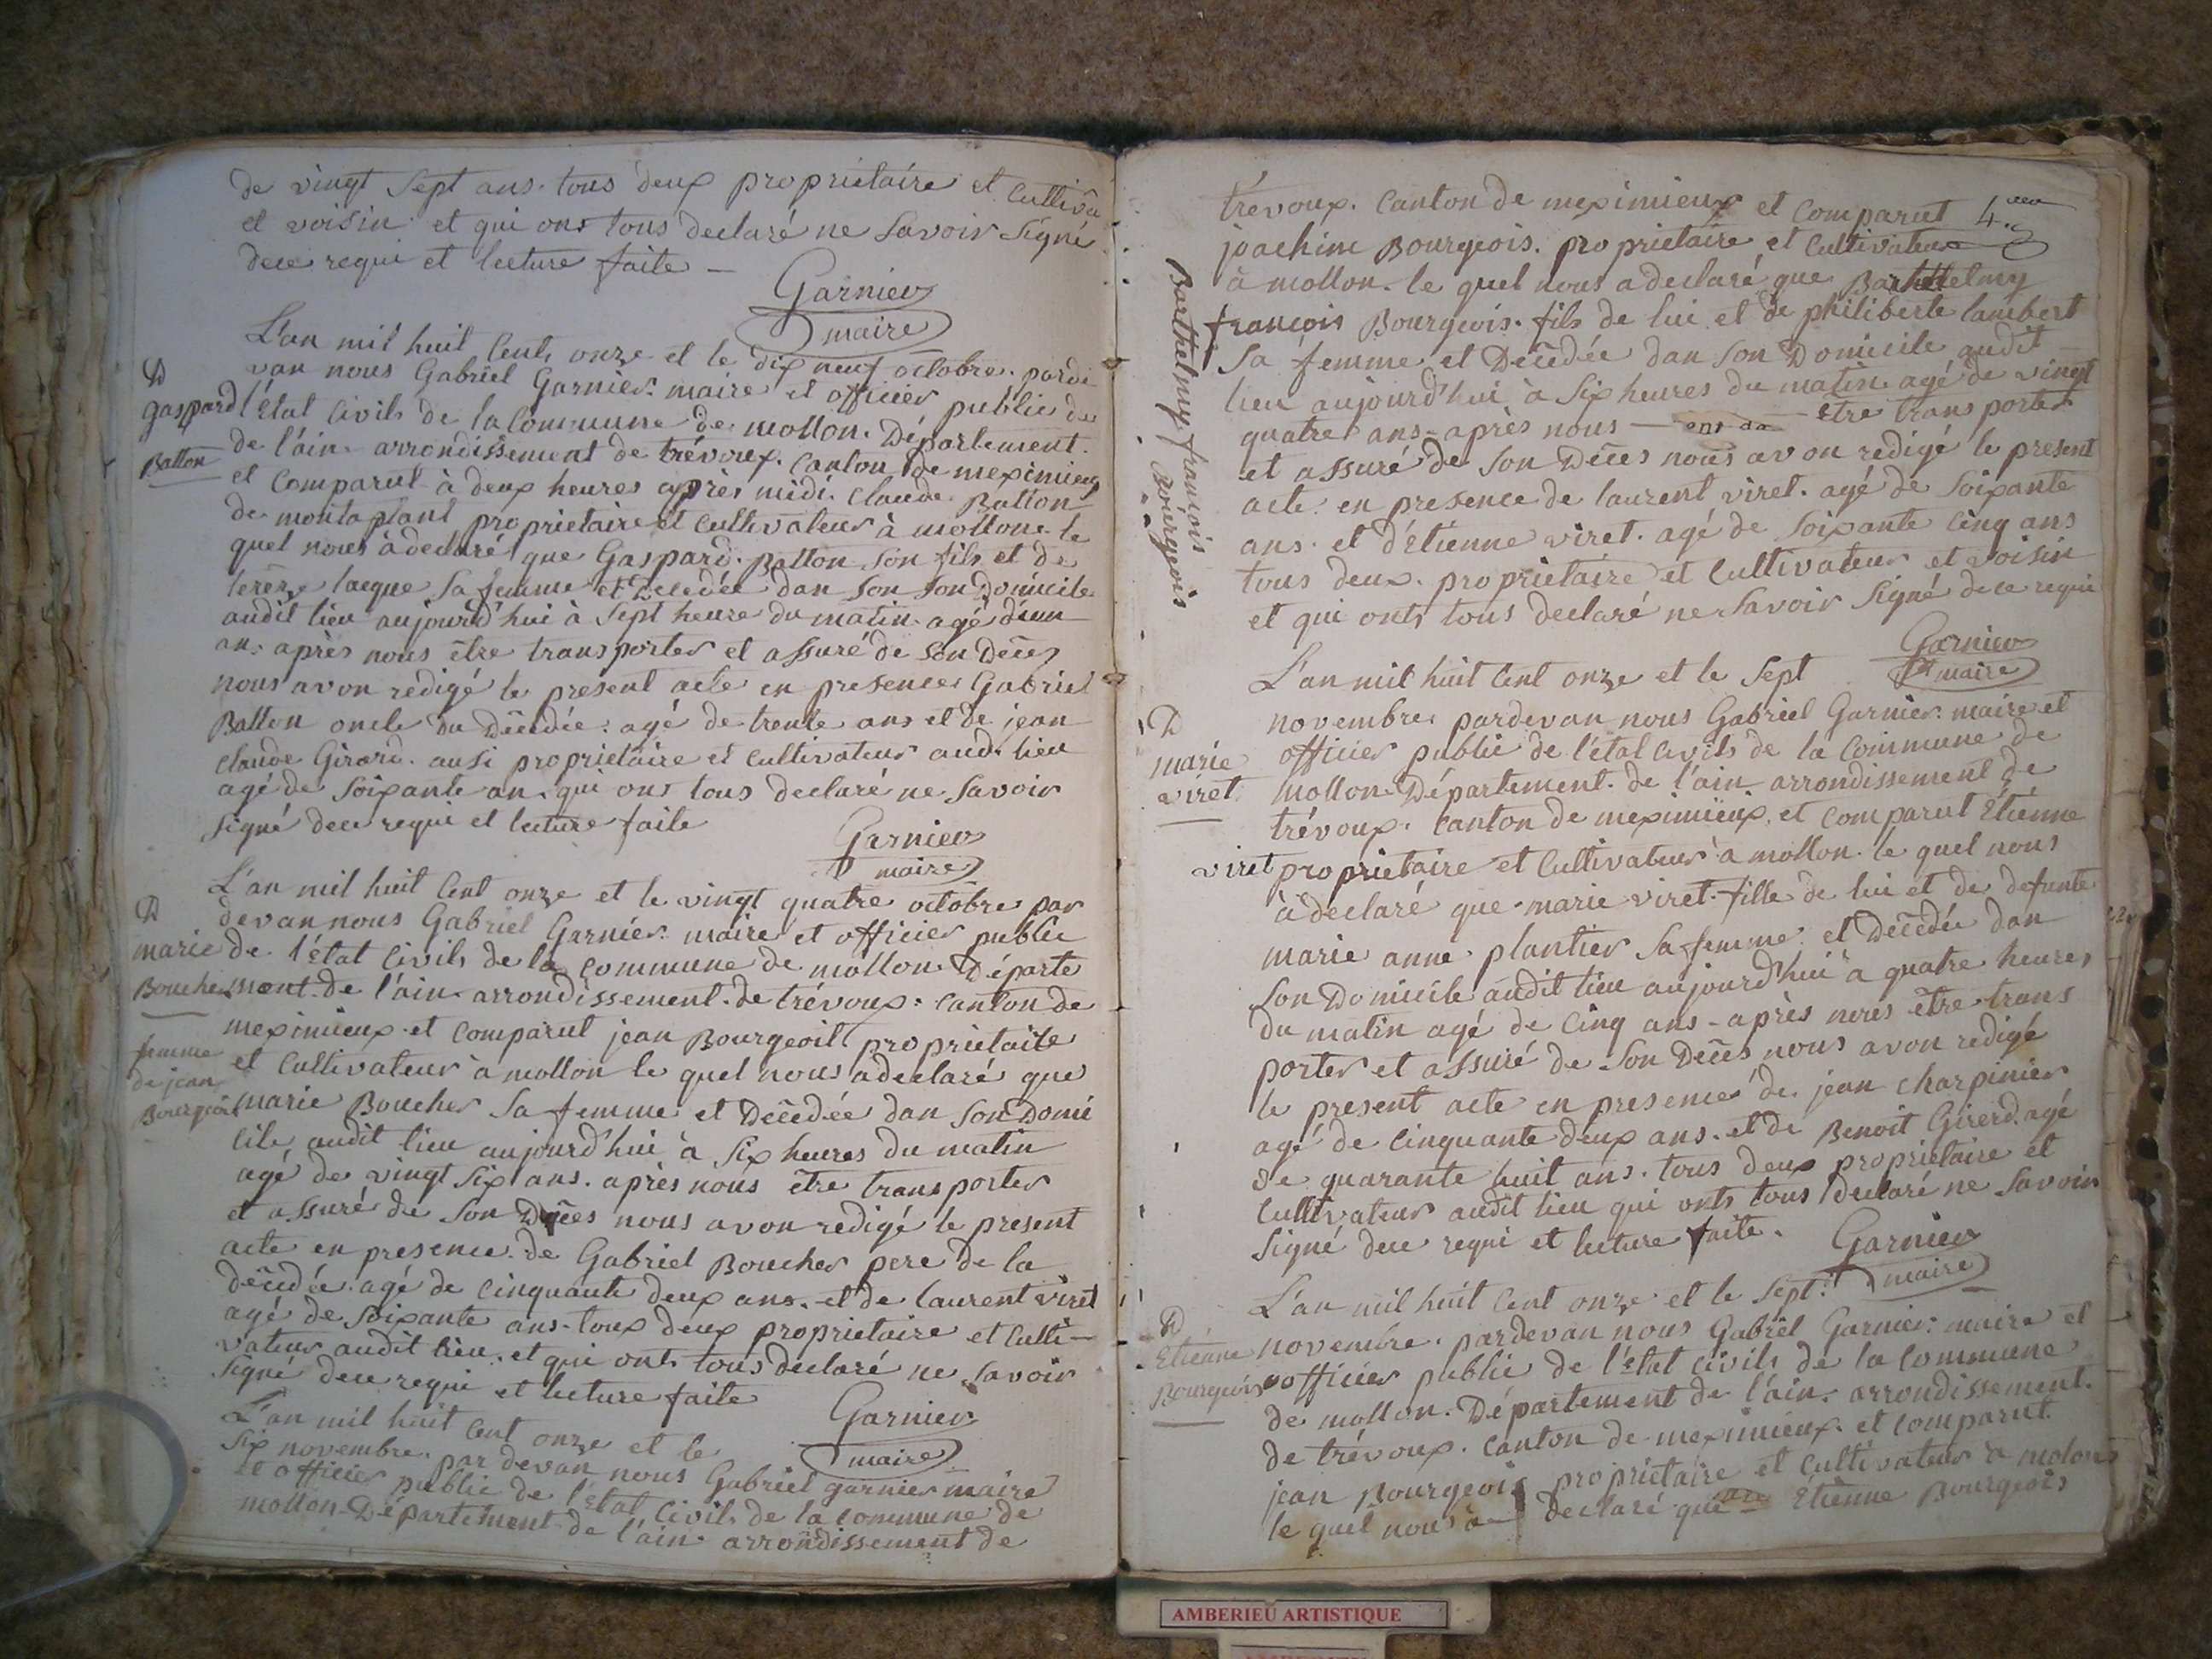 de vingt Sept ans. tous deux proprietaire et Cultiva
et voisin et qui ons tous declaré ne Savoir Signé
dece requi et lecture faite —
Garnier
maire
L'an mil huit Cent, onze et le dix neuf octobre. parde
van nous Gabriel Garnier. maire et officier public de
D
gaspard
Balton
l'état Civils de la Commune de mollon. Département.
de l'ain. arrondissement de trévoux. Canton de meximieux
et Comparut à deux heures après midi. Claude Balton
de montaplant proprietaire et Cultivateur à mollon. le
quel nous à declaré que Gaspard. Balton Son fils et de
terèze lacque Sa femme et Decedée dan Son Son Domicile
audit lieu aujourd'hui à Sept heure du matin. agé d'eun
an. après nous être transporter et assuré de Son Decès
nous avon redigé le present acte en presence Gabriel
Balton oncle du Decedée. agé de trente ans et de jean
claude Girard. ausi proprietaire et Cultivateur aud. lieu
agé de Soixante an. qui ons tous declaré ne Savoir
Signé dece requi et lecture faite
Garnier
maire
L'an mil huit Cent onze et le vingt quatre octobre par
devan nous Gabriel Garnier. maire et officier public
D
marie
Boucher
femme
de jean
Bourgeois
de l'état Civils de la Commune de mollon. Départe
ment. de l'ain. arrondissement. de trévoux. Canton de
meximieux. et Comparut jean Bourgeoit proprietaire
et Cultivateur à mollon le quel nous à declaré que
marie Boucher Sa femme et Decedée dan Son Domi
cile audit lieu aujourd'hui à Six heures du matin
agé de vingt Six ans. après nous être transporter
et assuré de Son Decès nous avon redigé le present
acte en presence de Gabriel Boucher pere de la
decedée. agé de Cinquante deux ans. et de laurent viret
agé de Soixante ans. tous deux proprietaire et Culti-
vateur audit lieu. et qui onts tous declaré ne Savoir
Signé dece requi et lecture faite
Garnier
maire
L'an mil huit Cent onze et le
Six novembre. par devan nous Gabriel garnier maire
et officier public de l'état Civils de la Commune de
mollon. Département de l'ain. arrondissement de
trévoux. Canton de meximieux et Comparut
joachim Bourgeois. proprietaire et Cultivateur
à mollon. le quel nous à declaré que Barthelmy
françois Bourgeois. fils de lui et de philiberte lambert
Barthelmy françois
Bourgeois
Sa femme et Decedée dan Son Domicile audit
lieu aujourd'hui à Six heures du matin. agé de vingt
quatre ans. après nous — être transporter
et assuré de Son Decès nous avon redigé le present
acte. en presence de laurent viret. agé de Soixante
ans. et d'étienne viret. agé de Soixante Cinq ans
tous deux. proprietaire et Cultivateur et voisin
et qui onts tous declaré ne Savoir Signé dece requi
Garnier
maire
L'an mil huit Cent onze et le Sept
novembre. pardevan nous Gabriel Garnier. maire et
D
marie
viret
officier public de l'état Civils de la Commune de
mollon. Département. de l'ain. arrondissement de
trévoux. Canton de meximieux. et Comparut Étienne
viret proprietaire et Cultivateur à mollon. le quel nous
à declaré que. marie viret. fille de lui et de defunte
marie anne plantier Sa femme. et Decedée dan
Son Domicile audit lieu aujourd'hui à quatre heures
du matin agé de Cinq ans. après nous être trans
porter et assuré de Son Decès nous avon redigé
le present acte en presence de. jean charpinier
agé de Cinquante deux ans. et de Benoit Girerd. agé
de quarante huit ans. tous deux proprietaire et
Cultivateur audit lieu qui onts tous declaré ne Savoir
Signé dece requi et lecture faite.
Garnier
maire
L'an mil huit Cent onze et le Sept.
D
Etienne
Bourgeois
novembre. pardevan nous Gabriel Garnier. maire et
officier public de l'état Civils de la Commune
de mollon. Département de l'ain. arrondissement.
de trévoux. Canton de meximieux. et Comparut.
jean Bourgeois proprietaire et Cultivateur à molons
le quel nous à declaré que Étienne Bourgeois
AMBERIEU ARTISTIQUE